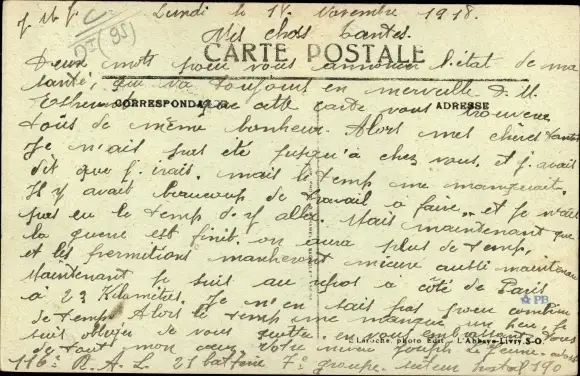 J. M. J. Lundi le 18 Novembre 1918.
DI (95)
Mes chers tantes.
CARTE POSTALE
Deux mots pour vous annoncer l'état de ma
santé, qui va toujours en merveille D. M.
CORRESPONDANCE que cette carte vous trouvera
ADRESSE
tous de même bonheur. Alors mes chères tantes
Je n'ait pas été jusqu'à chez vous et j'avait
dit que j'irait. mais le temp me manquait.
Il y avait beaucoup de travail à faire, et je n'ait
pas eu le temp d'y aller. Mais maintenant que
la guerre est finit. on aura plus de temp.
et les permitions marcheront mieux aussi maintenant
Maintenant je suit au repos a côté de Paris
à 23 Kilometres. Je n'en sait pas pour combien
de temp. Alors le temp me manque un peu je
suit obliger de vous quitter. en vous embrassant tous
de tout mon cœur votre neveu Joseph Le Jeune
C. Laroche, photo Edit. - L'Abbaye-Livry S.-O.
116e R. A. L. 21 battrie 7e groupe. secteur postal 190
PB